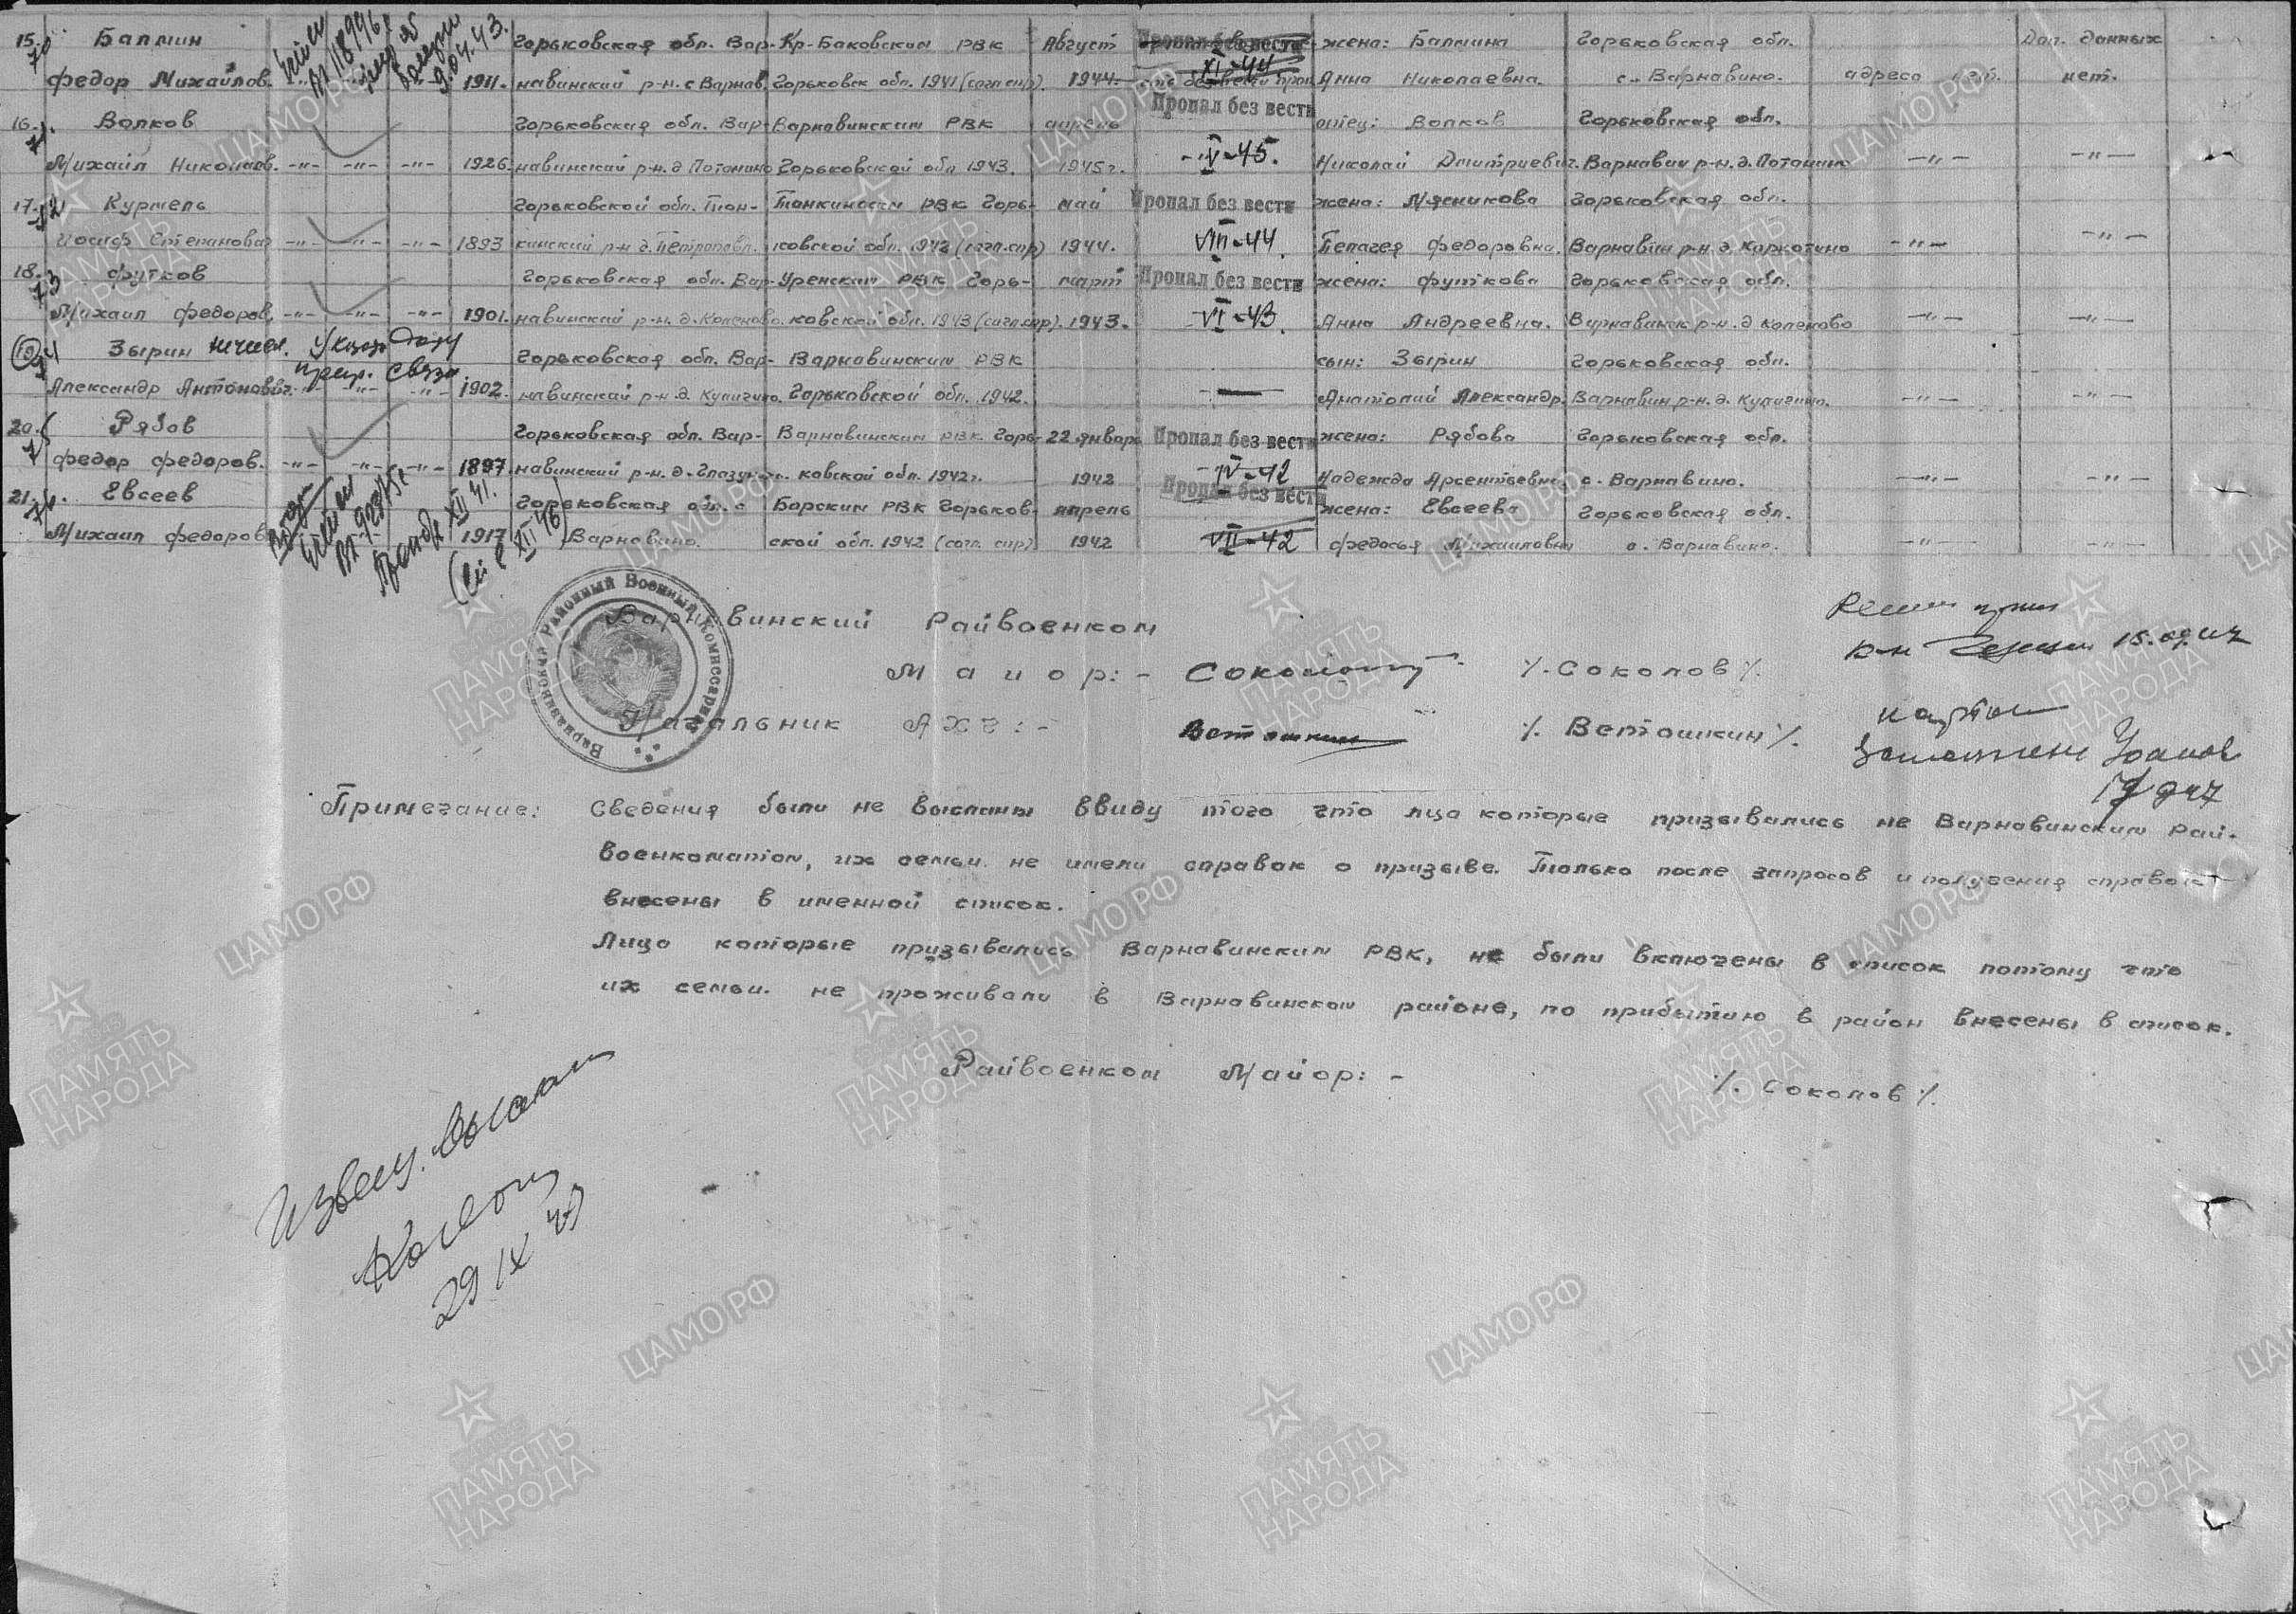 15. Балмин Горьковская обл. Вар- Кр-Баковским РВК Август Пропал без вести жена: Балмина Горьковская обл. Доп. данных
70 XI-44
Федор Михайлов. -"- 9.04.43. 1911. навинский р-н. с Варнав. Горьковск обл. 1941 (согл спр). 1944. Анна Николаевна. с. Варнавино. адреса нет. нет.
16. Волков Горьковская обл. Вар- Варнавинским РВК апрель Пропал без вести отец: Волков Горьковская обл.
71.
Михаил Николаев. -"- -"- -"- 1926. навинский р-н. д Потанино Горьковской обл 1943. 1945 г. -IV-45. Николай Дмитриевич. Варнавин р-н. д. Потанино -"- -"-
17. Курмель Горьковской обл. Тон- Тонкинским РВК Горь- май Пропал без вести жена: Мясникова Горьковская обл.
72
Иосиф Степанович -"- -"- -"- 1893 кинский р-н д. Петропавл. ковской обл. 1942 (согл.спр) 1944. VIII-44. Пелагея Федоровна. Варнавин р-н. д. -"- -"-
18. Футков Горьковская обл. Вар- Уренским РВК Горь- март Пропал без вести жена: Футкова Горьковская обл.
73
Михаил Федоров. -"- -"- -"- 1901. навинский р-н. д. Коленово. ковской обл. 1943 (согл.спр). 1943. -VI-43. Анна Андреевна. Варнавинск р-н. д Коленово -"- -"-
19 Зырин Горьковская обл. Вар- Варнавинским РВК сын: Зырин Горьковская обл.
74 связи
Александр Антонович. -"- -"- -"- 1902. навинский р-н. д. Кулигино. Горьковской обл. 1942. — Анатолий Александр. Варнавин р-н. д. Кулигино. -"- -"-
20. Рябов Горьковская обл. Вар- Варнавинским РВК Горь- 22 января Пропал без вести жена: Рябова Горьковская обл.
75
Федор Федоров. -"- -"- -"- 1897. навинский р-н. д. ковской обл. 1942 г. 1942 -IV-42 Надежда Арсентьевна с. Варнавино. -"- -"-
21. Евсеев XII 41. Горьковская обл. с Барским РВК Горьков- апрель Пропал без вести жена: Евсеева Горьковская обл.
76.
Михаил Федоров XII 46) 1917 Варнавино. ской обл. 1942 (согл. спр) 1942 VII-42 Федосья Михайловна с. Варнавино. -"- -"-
Варнавинский Районный Военный Комиссариат
Варнавинский Райвоенком
15.09.47
Маиор: - Соколов /.Соколов/.
Начальник АХЧ: - Ветошкин /. Ветошкин/.
Примечание: Сведения были не высланы ввиду того что лица которые призывались не Варнавинским рай-
военкоматом, их семьи не имели справок о призыве. Только после запросов и получения справок
внесены в именной список.
Лица которые призывались Варнавинским РВК, не были включены в список потому что
их семьи не проживали в Варнавинском районе, по прибытию в район внесены в список.
Райвоенком Майор: - /. Соколов/.
Извещ. высланы
29 IX 47